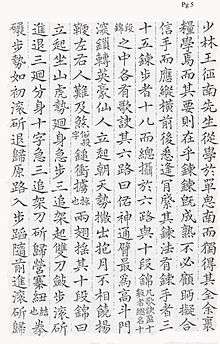 少林王征南先生從學於單思南而獨得其全余裹
糧學焉而其要則在乎鍊鍊既成熟不必顧盼擬合
信手而應縱橫前後悉逢肯綮其鍊法有鍊手者三
十五鍊步者十八而總攝於六路與十段錦
之中各有歌訣其六路曰佑神通臂最爲高斗門
深鎖轉英豪仙人立起朝天勢撒出抱月不相饒揚
鞭左右人難及煞鎚衝擄兩翅搖其十段錦曰
立起坐山虎勢廻身急步三追架起雙刀斂步滾斫
進退三廻分身十字急三追架刀斫歸營寨紐拳
碾步勢如初滾斫退歸原路入步蹈隨前進滾斫歸
Pg 5